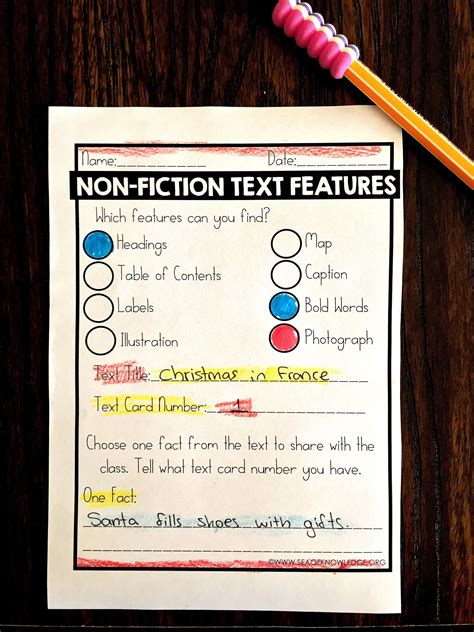 Name:__________ Date:________
NON-FICTION TEXT FEATURES
Which features can you find?
Headings Map
Table of Contents Caption
Labels Bold Words
Illustration Photograph
Text Title: Christmas in France
Text Card Number: 1
Choose one fact from the text to share with the
class. Tell what text card number you have.
One Fact:
Santa fills shoes with gifts.
©WWW.SEAOFKNOWLEDGE.ORG